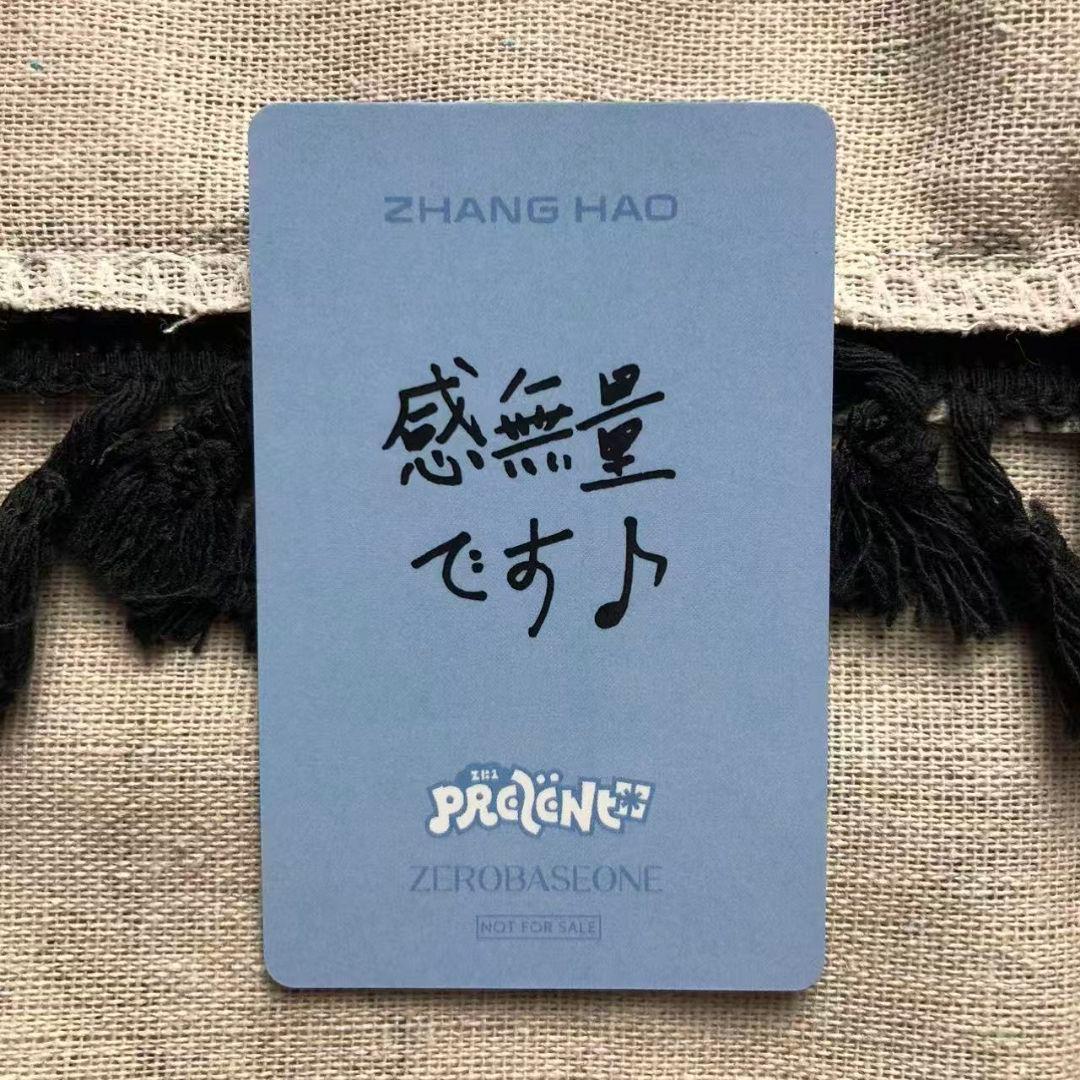 ZHANG HAO
感無量
です♪
ZB1
PRESENT
ZEROBASEONE
NOT FOR SALE